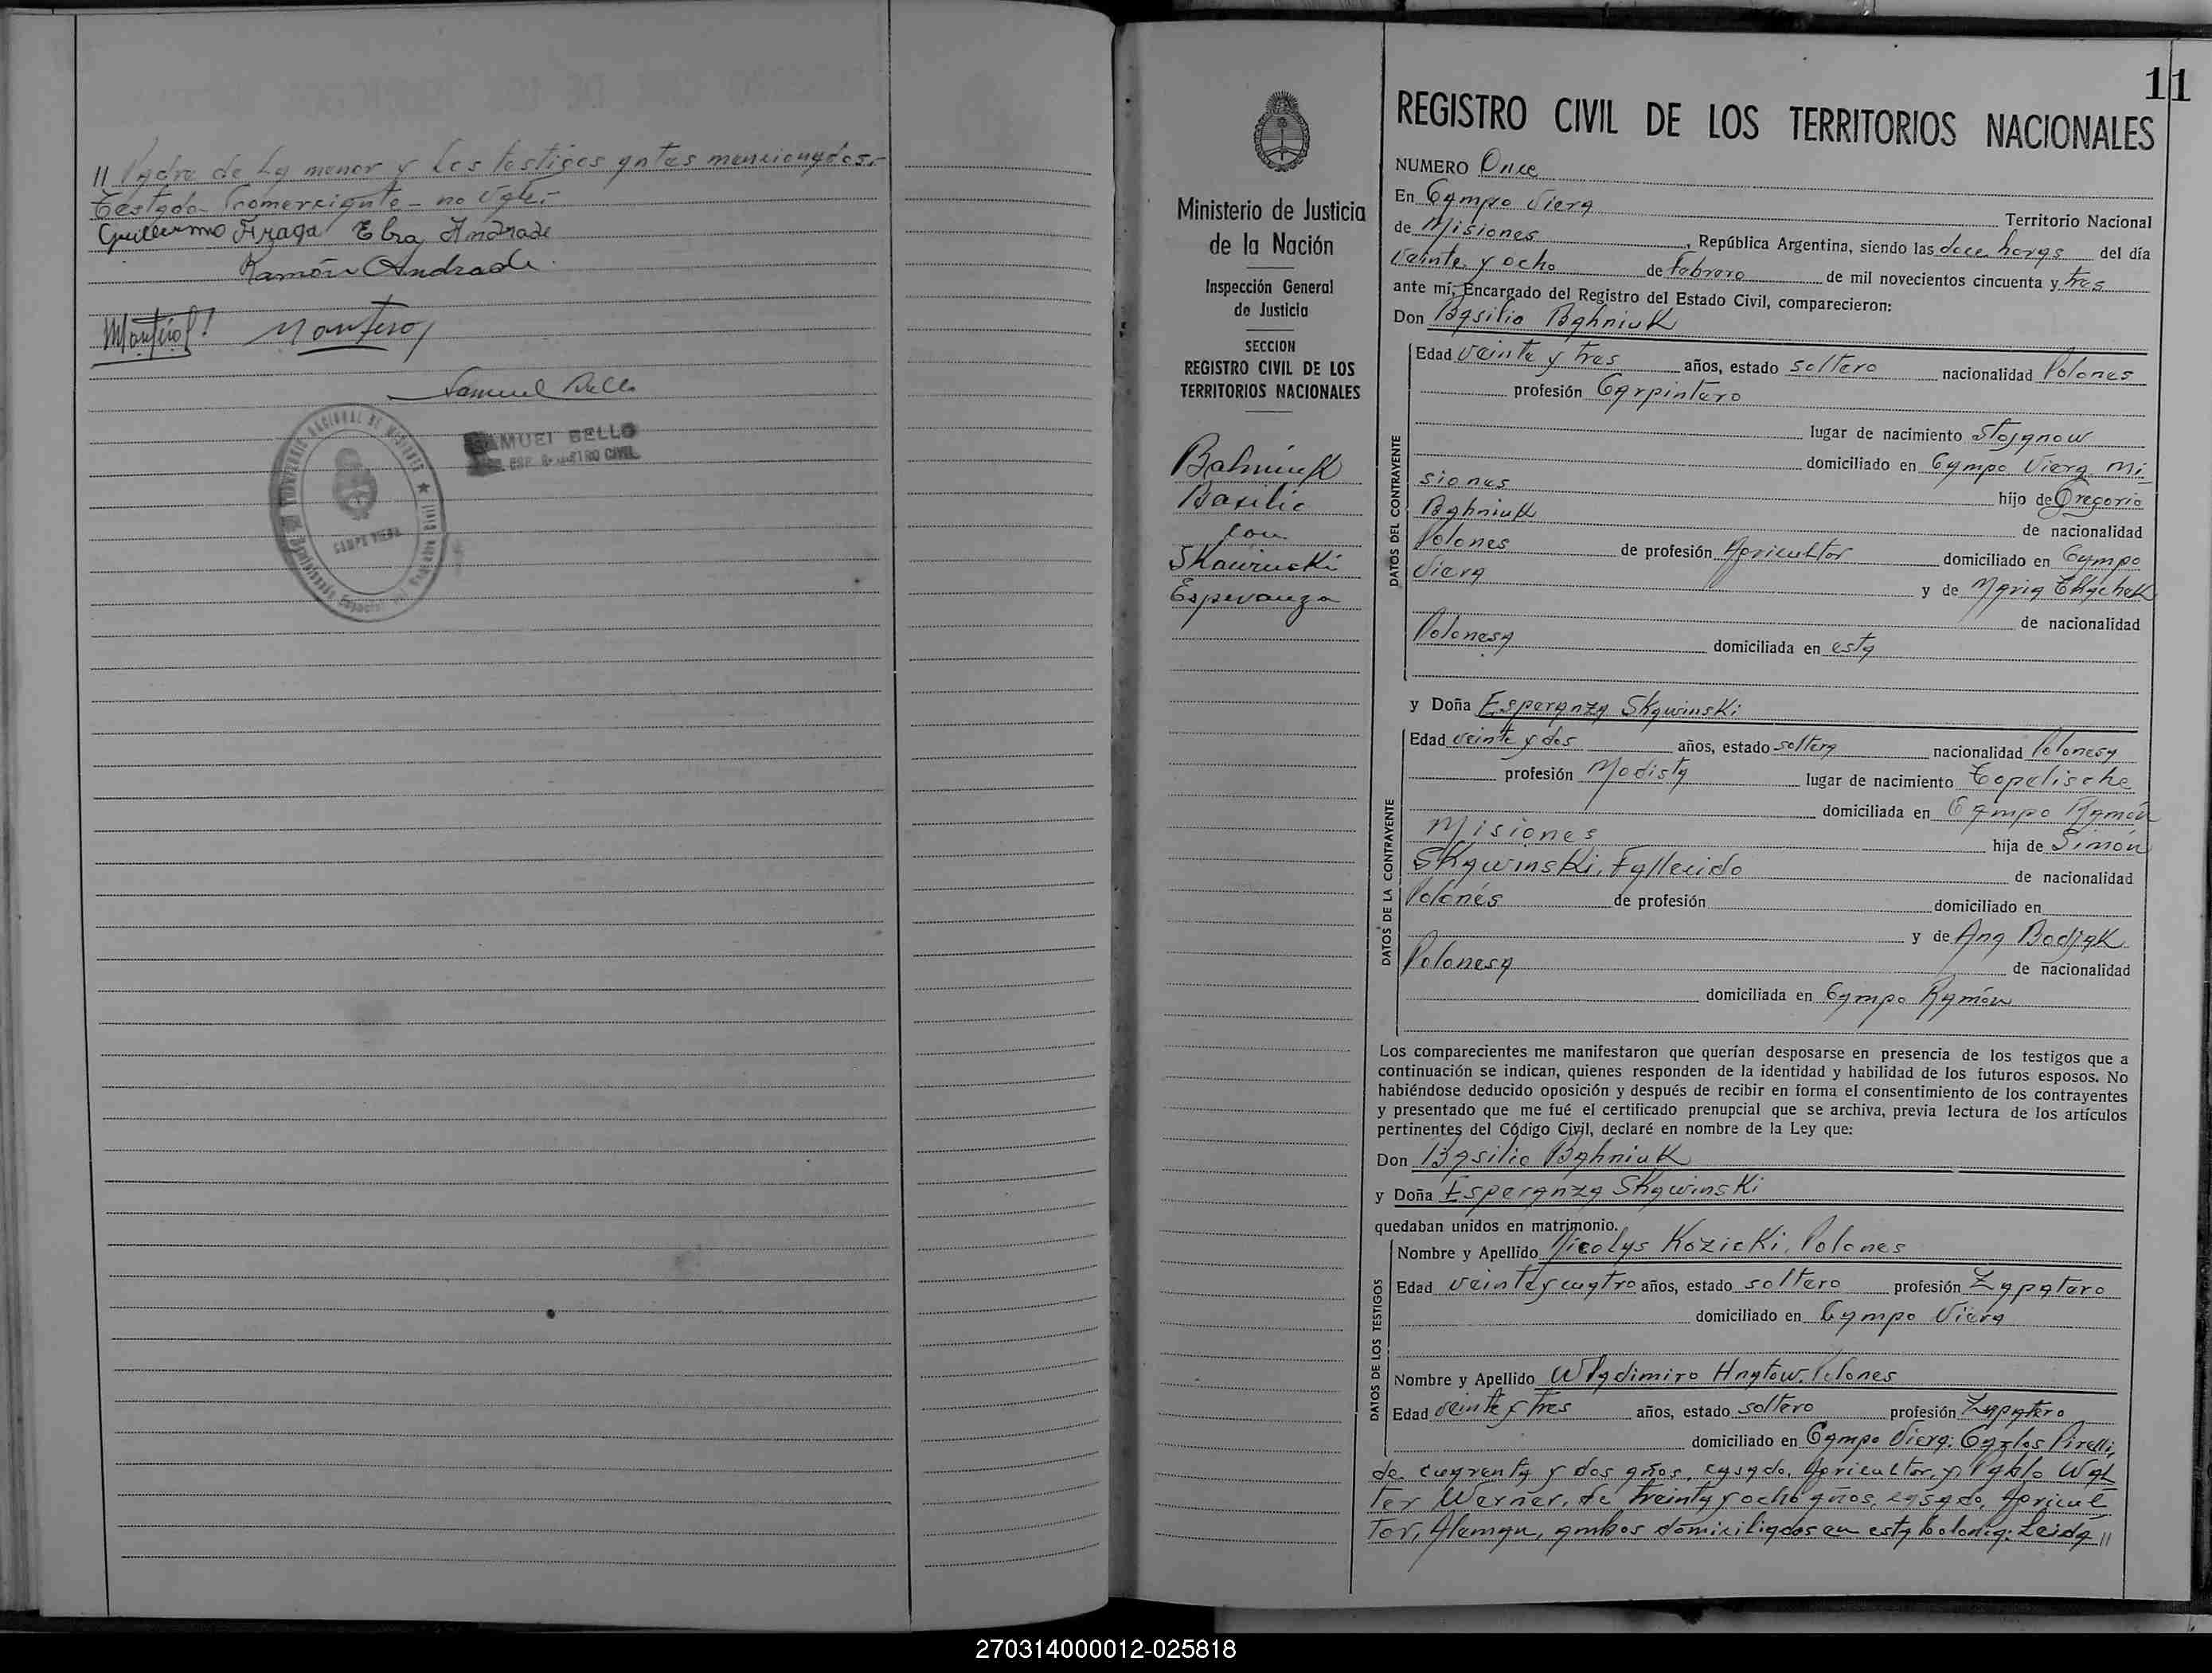 // Padre de la menor y los testigos antes mencionados.-
Testado Comerciante - no vale.-
Guillermo Fraga Elza Andrade
Ramón Andrade
Samuel Bello
SAMUEL BELLO
REGISTRO CIVIL
CAMPO VIERA
11
REGISTRO CIVIL DE LOS TERRITORIOS NACIONALES
Ministerio de Justicia
de la Nación
Inspección General
de Justicia
SECCION
REGISTRO CIVIL DE LOS
TERRITORIOS NACIONALES
Bahniuk
Basilio
con
Skawinski
Esperanza
NUMERO Once
En Campo Viera Territorio Nacional
de Misiones, República Argentina, siendo las doce horas del día
veinte y ocho de Febrero de mil novecientos cincuenta y tres
ante mí, Encargado del Registro del Estado Civil, comparecieron:
Don Basilio Bahniuk
DATOS DEL CONTRAYENTE
Edad veinte y tres años, estado soltero nacionalidad Polones
profesión Carpintero
lugar de nacimiento Stojanow
domiciliado en Campo Viera Mi
siones hijo de Gregorio
Bahniuk de nacionalidad
Polones de profesión Agricultor domiciliado en Campo
Viera y de Maria
de nacionalidad
Polonesa domiciliada en esta
y Doña Esperanza Skawinski
DATOS DE LA CONTRAYENTE
Edad veinte y dos años, estado soltera nacionalidad Polonesa
profesión Modista lugar de nacimiento Topelische
domiciliada en Campo Ramón
Misiones hija de Simón
Skawinski, Fallecido de nacionalidad
Polonés de profesión domiciliado en
y de Ana Bodjak
Polonesa de nacionalidad
domiciliada en Campo Ramón
Los comparecientes me manifestaron que querían desposarse en presencia de los testigos que a
continuación se indican, quienes responden de la identidad y habilidad de los futuros esposos. No
habiéndose deducido oposición y después de recibir en forma el consentimiento de los contrayentes
y presentado que me fué el certificado prenupcial que se archiva, previa lectura de los artículos
pertinentes del Código Civil, declaré en nombre de la Ley que:
Don Basilio Bahniuk
y Doña Esperanza Skawinski
quedaban unidos en matrimonio.
DATOS DE LOS TESTIGOS
Nombre y Apellido Nicolas Kozicki, Polones
Edad veinte y cuatro años, estado soltero profesión Zapatero
domiciliado en Campo Viera
Nombre y Apellido Wladimiro Hnatow, Polones
Edad veinte y tres años, estado soltero profesión Zapatero
domiciliado en Campo Viera; Carlos Pirelli,
de cuarenta y dos años, casado, Agricultor, y Pablo Wal
ter Werner, de treinta y ocho años, casado, Agricul
tor, Aleman, ambos domiciliados en esta Colonia: Leida //
270314000012-025818